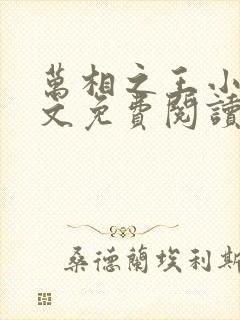 萬相之王小
文免費閱讀
桑德蘭埃利斯